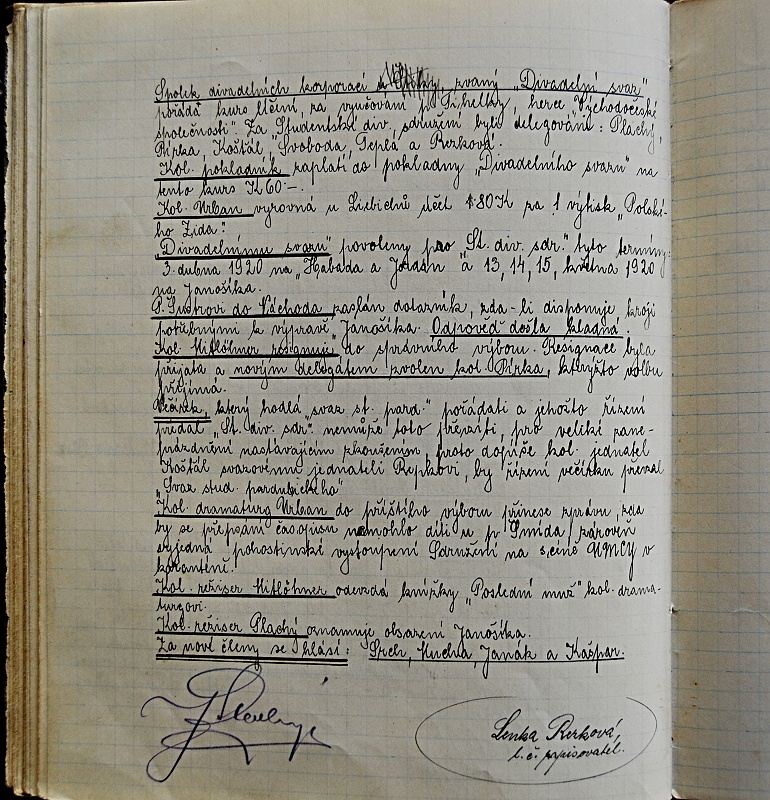 Spolek divadelních korporací zvaný „Divadelní svaz"
pořádá kurs líčení, za vyučování p. Tihelky, herce „Východočeské
společnosti". Za „Studentské div. sdružení byli delegováni: Plachý,
Pírka, Košťál, Svoboda, Teplá a Rerková.
Kol. pokladník zaplatí do pokladny „Divadelního svazu" na
tento kurs K 60·–.
Kol. Urban vyrovná u Liebichů účet 80 K za 1 výtisk „Polské-
ho Žida".
„Divadelnímu svazu" povoleny pro „St. div. sdr." tyto termíny:
3. dubna 1920 na „Habada a Jordán" a 13, 14, 15, května 1920
na Janošíka.
P. Šustrovi do Náchoda zaslán dotazník, zda-li disponuje kroji
potřebnými k výpravě „Janošíka. Odpověď došla kladná.
Kol. Mitlöhner resignuje do správního výboru. Resignace byla
přijata a novým delegátem zvolen kol. Pírka, kterýžto volbu
přijímá.
Večírek, který hodlá „svaz st. pard." pořádati a jehožto řízení
předal „St. div. sdr." nemůže toto převzíti, pro veliké zane-
prázdnění nastávajícím zkoušením, proto dopíše kol. jednatel
Košťál svazovému jednateli Repkovi, by řízení večírku převzal
„Svaz stud. pardubického"
„Kol. dramaturg Urban do příštího výboru přinese zprávu, zda
by se přepsání časopisu nemohlo díti u p. Šmída, zároveň
vyjedná pohostinské vystoupení Sdružení na scéně UMCY v
karanténě.
Kol. režiser Mitlöhner odevzdá knížky „Poslední muž" kol. drama-
turgovi.
Kol. režiser Plachý oznamuje obsazení Janošíka.
Za nové členy se hlásí: Srch, Kuchta, Janák a Kašpar.
Plachý
Lenka Rerková,
t. č. zapisovatel.